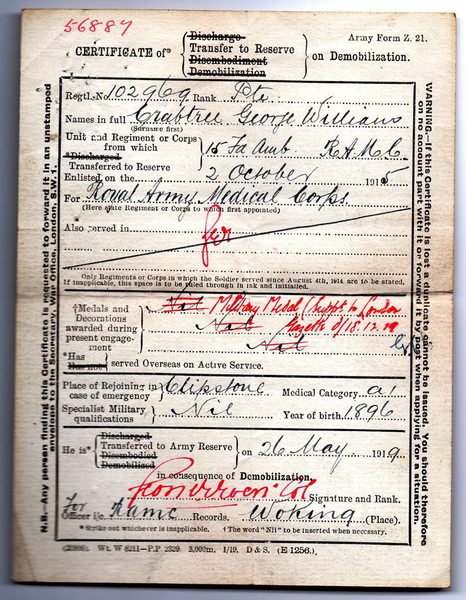 56887
Army Form Z. 21.
CERTIFICATE of* { Discharge Transfer to Reserve Disembodiment Demobilization } on Demobilization.
Regtl. No. 102969 Rank Pte
Names in full Crabtree George William
(Surname first)
Unit and Regiment or Corps from which } 15 Fd Amb R.A.M.C.
*Discharged
Transferred to Reserve
Enlisted on the 2 October 1915
For Royal Army Medical Corps
(Here state Regiment or Corps to which first appointed)
Also served in
Only Regiments or Corps in which the Soldier served since August 4th, 1914, are to be stated.
If inapplicable, this space is to be ruled through in ink and initialled.
†Medals and Decorations awarded during present engagement } Nil Military Medal Suppt to London
Nil Gazette d/18.12.18
Nil
*Has
Has not } served Overseas on Active Service.
Place of Rejoining in case of emergency } Clipstone Medical Category A1
Specialist Military qualifications } Nil Year of birth 1896
He is* { Discharged Transferred to Army Reserve Disembodied Demobilized } on 26 May 1919
in consequence of Demobilization.
Col Signature and Rank.
For
Officer i/c RAMC Records. Woking (Place).
* Strike out whichever is inapplicable. † The word "Nil" to be inserted when necessary.
(20896). Wt. W 8211—P.P. 2329. 3,000m, 1/19. D & S. (E 1256.)
N.B.—Any person finding this Certificate is requested to forward it in an unstamped
envelope to the Secretary, War Office, London, S.W. 1.
WARNING.—If this Certificate is lost a duplicate cannot be issued. You should therefore
on no account part with it or forward it by post when applying for a situation.